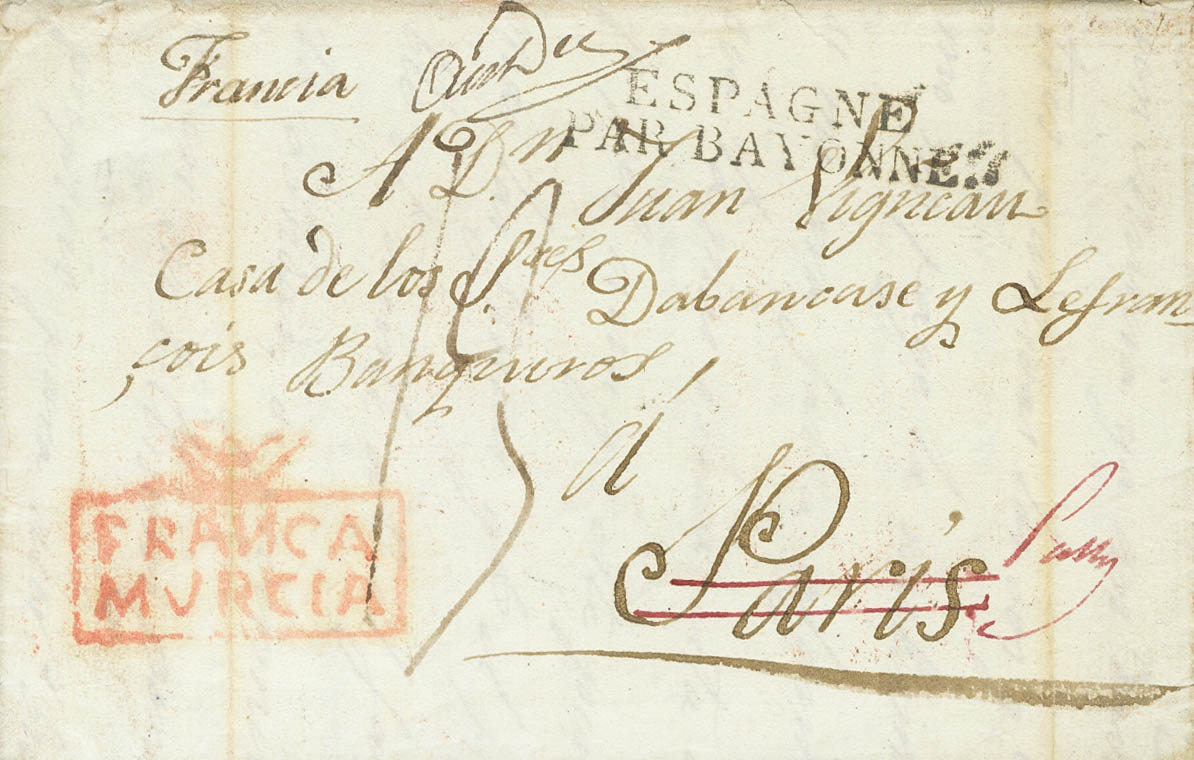 Francia
ESPAGNE
PAR BAYONNE.
A Dn Juan Vigneau
Casa de los Sres Dabancase y Lefran
çois Banqueros,
à
Paris
FRANCA
MURCIA